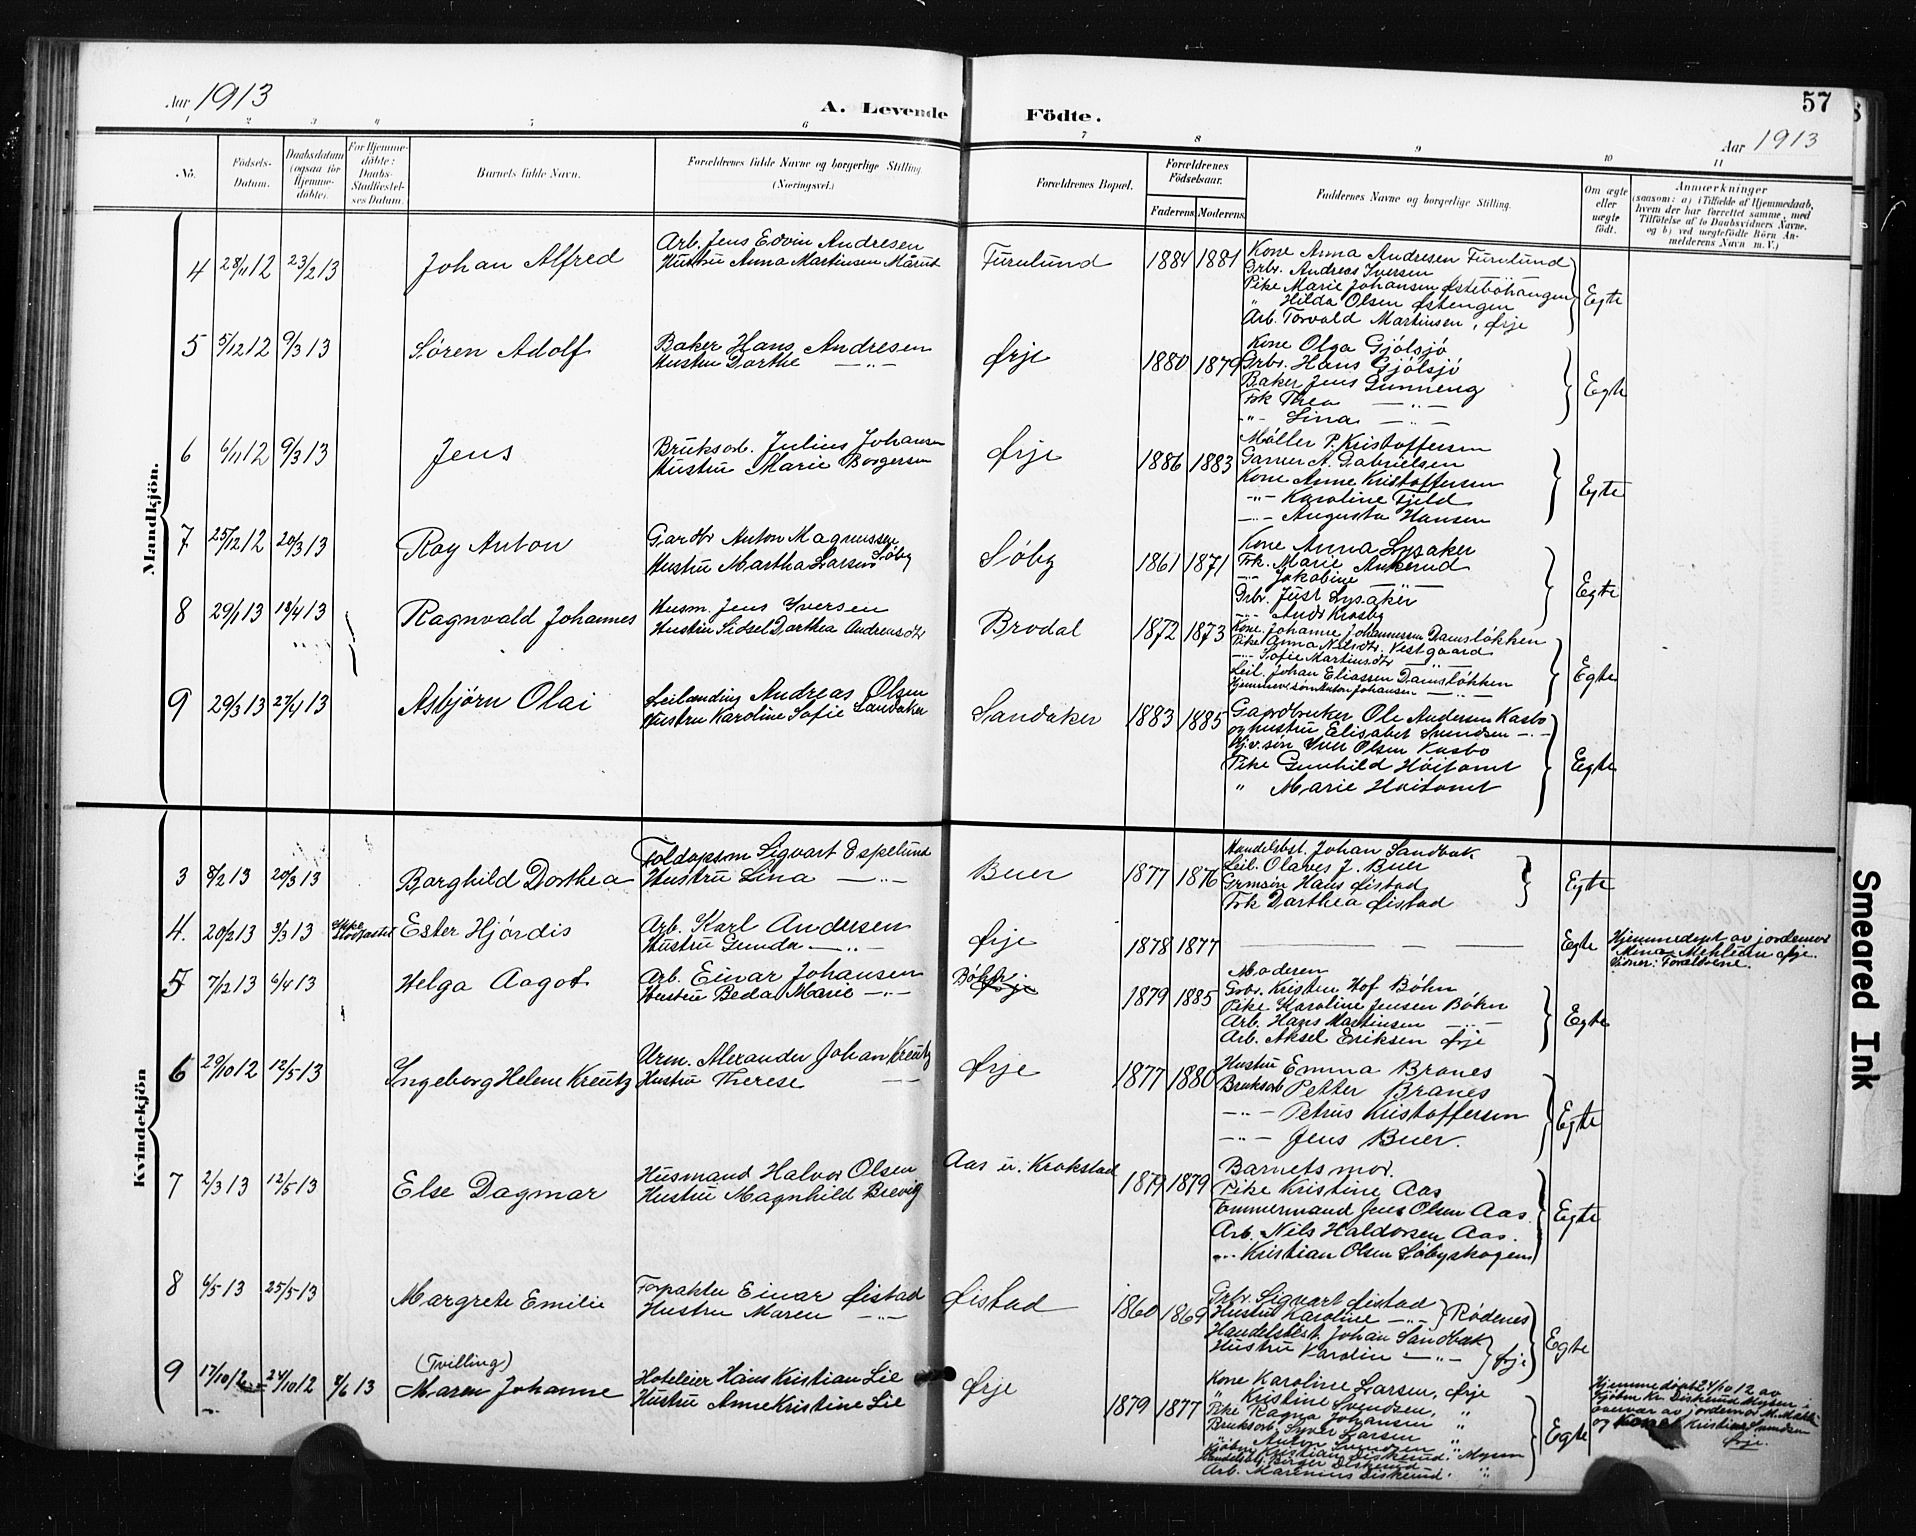 Aar 1913
A. Levende Födte.
57
Aar 1913
1 2 3 4 5 6 7 8 9 10 11
No.
Födsels-Datum.
Daabsdatum (ogsaa for Hjemme-døbte).
For Hjemme-døbte: Daabs-Stadfæstel-ses Datum.
Barnets fulde Navn.
Forældrenes fulde Navne og borgerlige Stilling. (Næringsvei.)
Forældrenes Bopæl.
Forældrenes Födselsaar.
Faderens. Moderens.
Faddernes Navne og borgerlige Stilling.
Om ægte eller uægte født.
Anmærkninger
(saasom: a) i Tilfælde af Hjemmedaab, hvem der har forrettet samme, med Tilføielse af to Daabsvidners Navne, og b) ved uægtefødte Börn Anmelderens Navn m.V.)
Mandkjön.
4 28/11 12 23/2 13 Johan Alfred
Arb. Jens Edvin Andresen
Hustru Anna Martinsen Mårud
Furulund 1884 1881
Kone Anna Andresen Furulund
Grbr. Andreas Iversen
Pike Marie Johansen Østebøhaugen
" Hilda Olsen Østengen
Arb. Torvald Martinsen, Ørje
Egte
5 5/12 12 9/3 13 Søren Adolf
Baker Hans Andresen
Hustru Dorthe —"—
Ørje 1880 1879
Kone Olga Gjølsjø
Grbr. Hans Gjølsjø
Baker Jens Gunneng
Frk Thea —"—
—"— Lina —"—
Egte
6 6/11 12 9/3 13 Jens
Bruksarb. Julius Johansen
Hustru Marie Borgersen
Ørje 1886 1883
Møller P. Kristoffersen
Garver A. Gabrielsen
Kone Anne Kristoffersen
—"— Karoline Fjeld
—"— Augusta Hansen
Egte
7 25/12 12 20/3 13 Roy Anton
Gardbr Anton Magnussen
Hustru Martha Larsen Søby
Søby 1861 1871
Kone Anna Lysaker
Frk. Marie Ankerud
—"— Jakobine —"—
Grbr. Just Lysaker
—"— Andr Krosby
Egte
8 29/1 13 13/4 13 Ragnvald Johannes
Husm. Jens Iversen
Hustru Sidsel Dorthea Andreasdtr
Brodal 1872 1873
Kone Johanne Johannessen Damsløkken
Pike Anna Nilsdtr. Vestgaard
—"— Sofie Martinsdtr —"—
Leil. Johan Eliassen Damsløkken
Hjemmev. søn Anton Johansen —"—
Egte
9 29/3 13 27/4 13 Asbjørn Olai
Leilending Andreas Olsen
Hustru Karoline Sofie Sandaker
Sandaker 1883 1885
Gardbruker Ole Andersen Kasbo
og hustru Elisabet Svendsen —"—
Hjv. søn Iver Olsen Kasbo
Pike Gunhild Høitomt
" Marie Høitomt
Egte
Kvindekjön
3 8/2 13 20/3 13 Borghild Dorthea
Toldopsm Sigvart Espelund
Hustru Lina —"—
Buer 1877 1876
Handelsbst. Johan Sandbæk
Leil. Olaves J. Buer
Grmsøn Hans Øistad
Frk Dorthea Øistad
Egte
4. 20/2 13 3/3 13 Ikke stadfæstet Ester Hjørdis
Arb. Karl Andersen
Hustru Gunda —"—
Ørje 1878 1877
— — —
Egte
Hjemmedøpt av jordemor
Mina Mehlum Ørje.
Vidner: Forældrene.
5 7/12 13 6/4 13 Helga Aagot
Arb. Einar Johansen
Hustru Beda Marie —"—
Bøhn Ørje 1879 1885
Moderen
Grbr. Kristen Hof Bøhn
Pike Karoline Jensen Bøhn
Arb. Hans Martinsen —"—
Arb. Aksel Eriksen Ørje
Egte
6 29/10 12 12/5 13 Ingeborg Helene Kreutz
Urm. Alexander Johan Kreutz
Hustru Therese —"—
Ørje 1877 1880
Hustru Emma Branes
Bruksarb Petter Branes
—"— Petrus Kristoffersen
—"— Jens Buer.
Egte
7 2/3 13 12/5 13 Else Dagmar
Husmand Halvor Olsen
Hustru Magnhild Brevig
Aas u. Krokstad 1879 1879
Barnets mor.
Pike Kristine Aas
Tømmermand Jens Olsen Aas.
Arb. Nils Haldorsen Aas.
—"— Kristian Olsen Søbyskogen
Egte
8 6/5 13 25/5 13 Margrete Emilie
Forpakter Einar Øistad
Hustru Maren —"—
Øistad 1860 1869
Grbr. Sigvart Øistad
Hustru Karoline —"— } Rødenes
Handelsbest. Johan Sandbæk
Hustru Karolin —"— } Ørje
Egte
9 17/10 12 24/10 12 8/6 13 (Tvilling) Maren Johanne
Hoteleier Hans Kristian Lie
Hustru Anne Kristine Lie
Ørje 1879 1877
Kone Karoline Larsen, Ørje
" Kristine Svendsen, "
Pike Ragna Johansen "
Bruksarb. Syver Larsen "
" Anton Svendsen "
Kjøbm Kristian Diskerud. Mysen
Handelsbetj. Birger Diskerud "
Arb. Marenius Diskerud. "
Egte
Hjemmedøbt 24/10 12 av
Kjøbm Kr. Diskerud Mysen i
overvær av jordemor
og Kone Kristine Svendsen
Ørje.
Smeared Ink